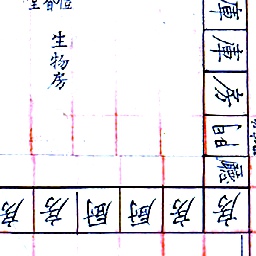 生物房
庫
庫
房
廳
房
房
厨
厨
房
房